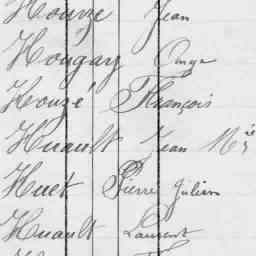 Houzé Jean
Hougay Ange
Houzé François
Huault Jean Mie
Huet Pierre Julien
Huault Laurent